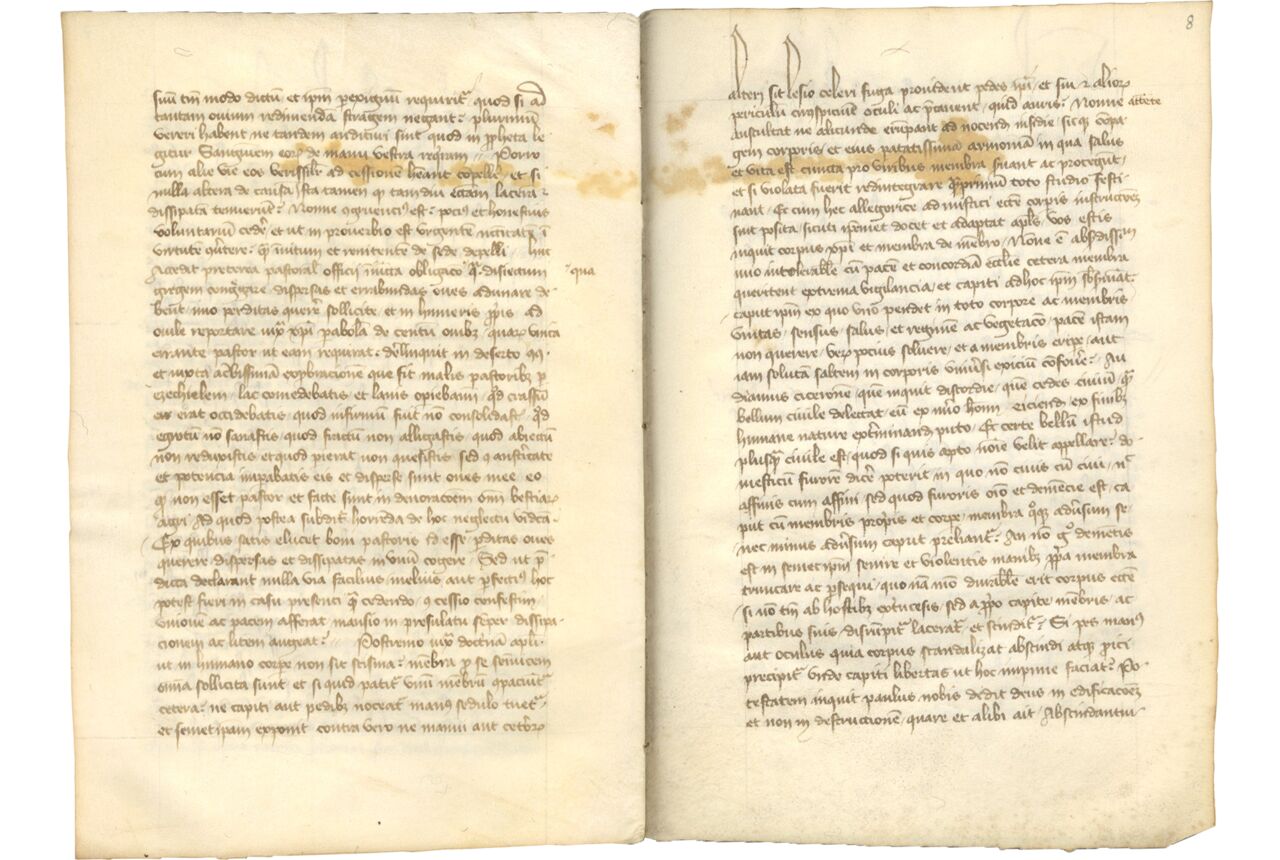 suū tm̄ modo dictū et ip̄m perexiguū requirit̄ quod si ad
tantam ouium redimenda stragem negant plurimū
vereri habent ne tandem audituri sint quod in propheta le
gitur Sanguinem eoꝝ de manu vestra requiram Porro
cum alie vie eos ad cessionem et si
nulla altera de causa ista tamen tamdiu eccam lacerā et
dissipatā tenuerūt Nonne est pocius et honestius
voluntariū cedere et ut in prouerbio est vrgente
virtute quā inuitum et renitente de sede depelli huc
Accedit preterea pastoral officii obligaco qua disiectum
gregem congregare dispersas et errabundas oues adunare de
bent imo perditas quere sollicite et in humeris ppiis ad
ouile reportare iux xp̄i parabola de centū ouibꝫ quaꝝ vnica
errante pastor ut eam requirat derelinquit in deserto
et iuxta exprobracione que fit malis pastoribꝫ p
ezechielem lac comedebatis et lanis opiebami qd crassū
erat occidebatis quod infirmū fuit nō consolidast qd
egrotū nō sanastis quod fractū non alligastis quod abiectū
non reduxistis et quod pierat non quesistis sed cū austitate
et potencia impabatis eis et disperse sunt oues mee eo
qd non esset pastor et facte sunt in deuoracoem omī bestiaꝝ
agri Ad quod postea subdit horrēda de hoc neglectu
Ex quibus satis elucet boni pastoris id esse pditas oues
querere dispersas et dissipatas in vnū cogere Sed ut p
dicta declarant nulla via facilius melius aut pfectius hoc
potest fieri in casu presenti quā cedendo cessio confestim
vnione ac pacem afferat mansio in presulatu seper dissipa
cionem ac litem augeat Postremo iux doctnā apli
ut in humano corpe non sit scisma mēbra p se inuicem
sollicita sunt et si quid patit vnū mēbrū cpaciunt
cetera ne capiti aut pedibꝫ noceat manus sedulo tuet
et semet ipam exponit contra vero ne manui aut ceteris
8
Alteri sit lesio celeri fuga prouident pedes ipi et sui et alioꝝ
periculū oculi ac pcauent quid auris Nonne attēte
auscultat ne alicunde erumpant ad nocendū insidie sicqꝫ compa
gem corporis et eius armoniam in qua salus
et vita est cuncta pro viribus membra ac protegūt
et si violata fuerit redintegrare toto studio festi
nant Et cum hec allegorice ad mistici eccē corpis instructōem
sint posita sicuti docet et adaptat apls vos estis
inquit corpus xp̄i et membra de mēbro Nōne ē
intolerable cū pacem et concordiā eccliē cetera membra
queritent extrema vigilancia et capiti adhoc ipm
caput ipm ex quo vno pendet in toto corpore ac membris
vnitas sensus salus et regimē ac vegetacō pacem istam
non querere vero pocius soluere et a membris eripe aut
iam solutā saltem in corporis vniusi exiciū An
dicamus ciceronē quem inquit discordie quē cedes ciuiū quē
bellum ciuile delectat eū ex nūo homī eiciendū ex finibꝫ
humane nature exterminandū puto Et certe bellū istud
plusquā ciuile est quod si quis apto noīe velit appellare do
mesticum furore dicere poterit in quo nō ciuis cū ciui nec
affinis cum affini sed quod furoris oīo et demēcie est ca
put cū membris propiis et corpe membra adusum se
nec minus adusum caput preliant An nō demētis
est in semet ipm seuire et violentis manibꝫ ppa membra
truncare ac psequi quo modo durable erit corpus eccē
si nō tm ab hostibꝫ sed a ppo capite mēbris ac
partibus suis disrupit lacerat et scindit Si pes manus
aut oculus quia corpus scandalizat abscindi atqꝫ proici
precipit vnde capiti libertas ut hoc impune faciat Po
testatem inquit paulus nobis dedit deus in edificacoem
et non in destructionē quare et alibi ait Abscindantur